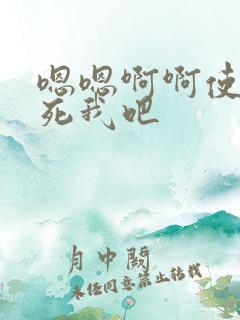 嗯嗯啊啊使
死我吧
月中阙
未经同意禁止转载